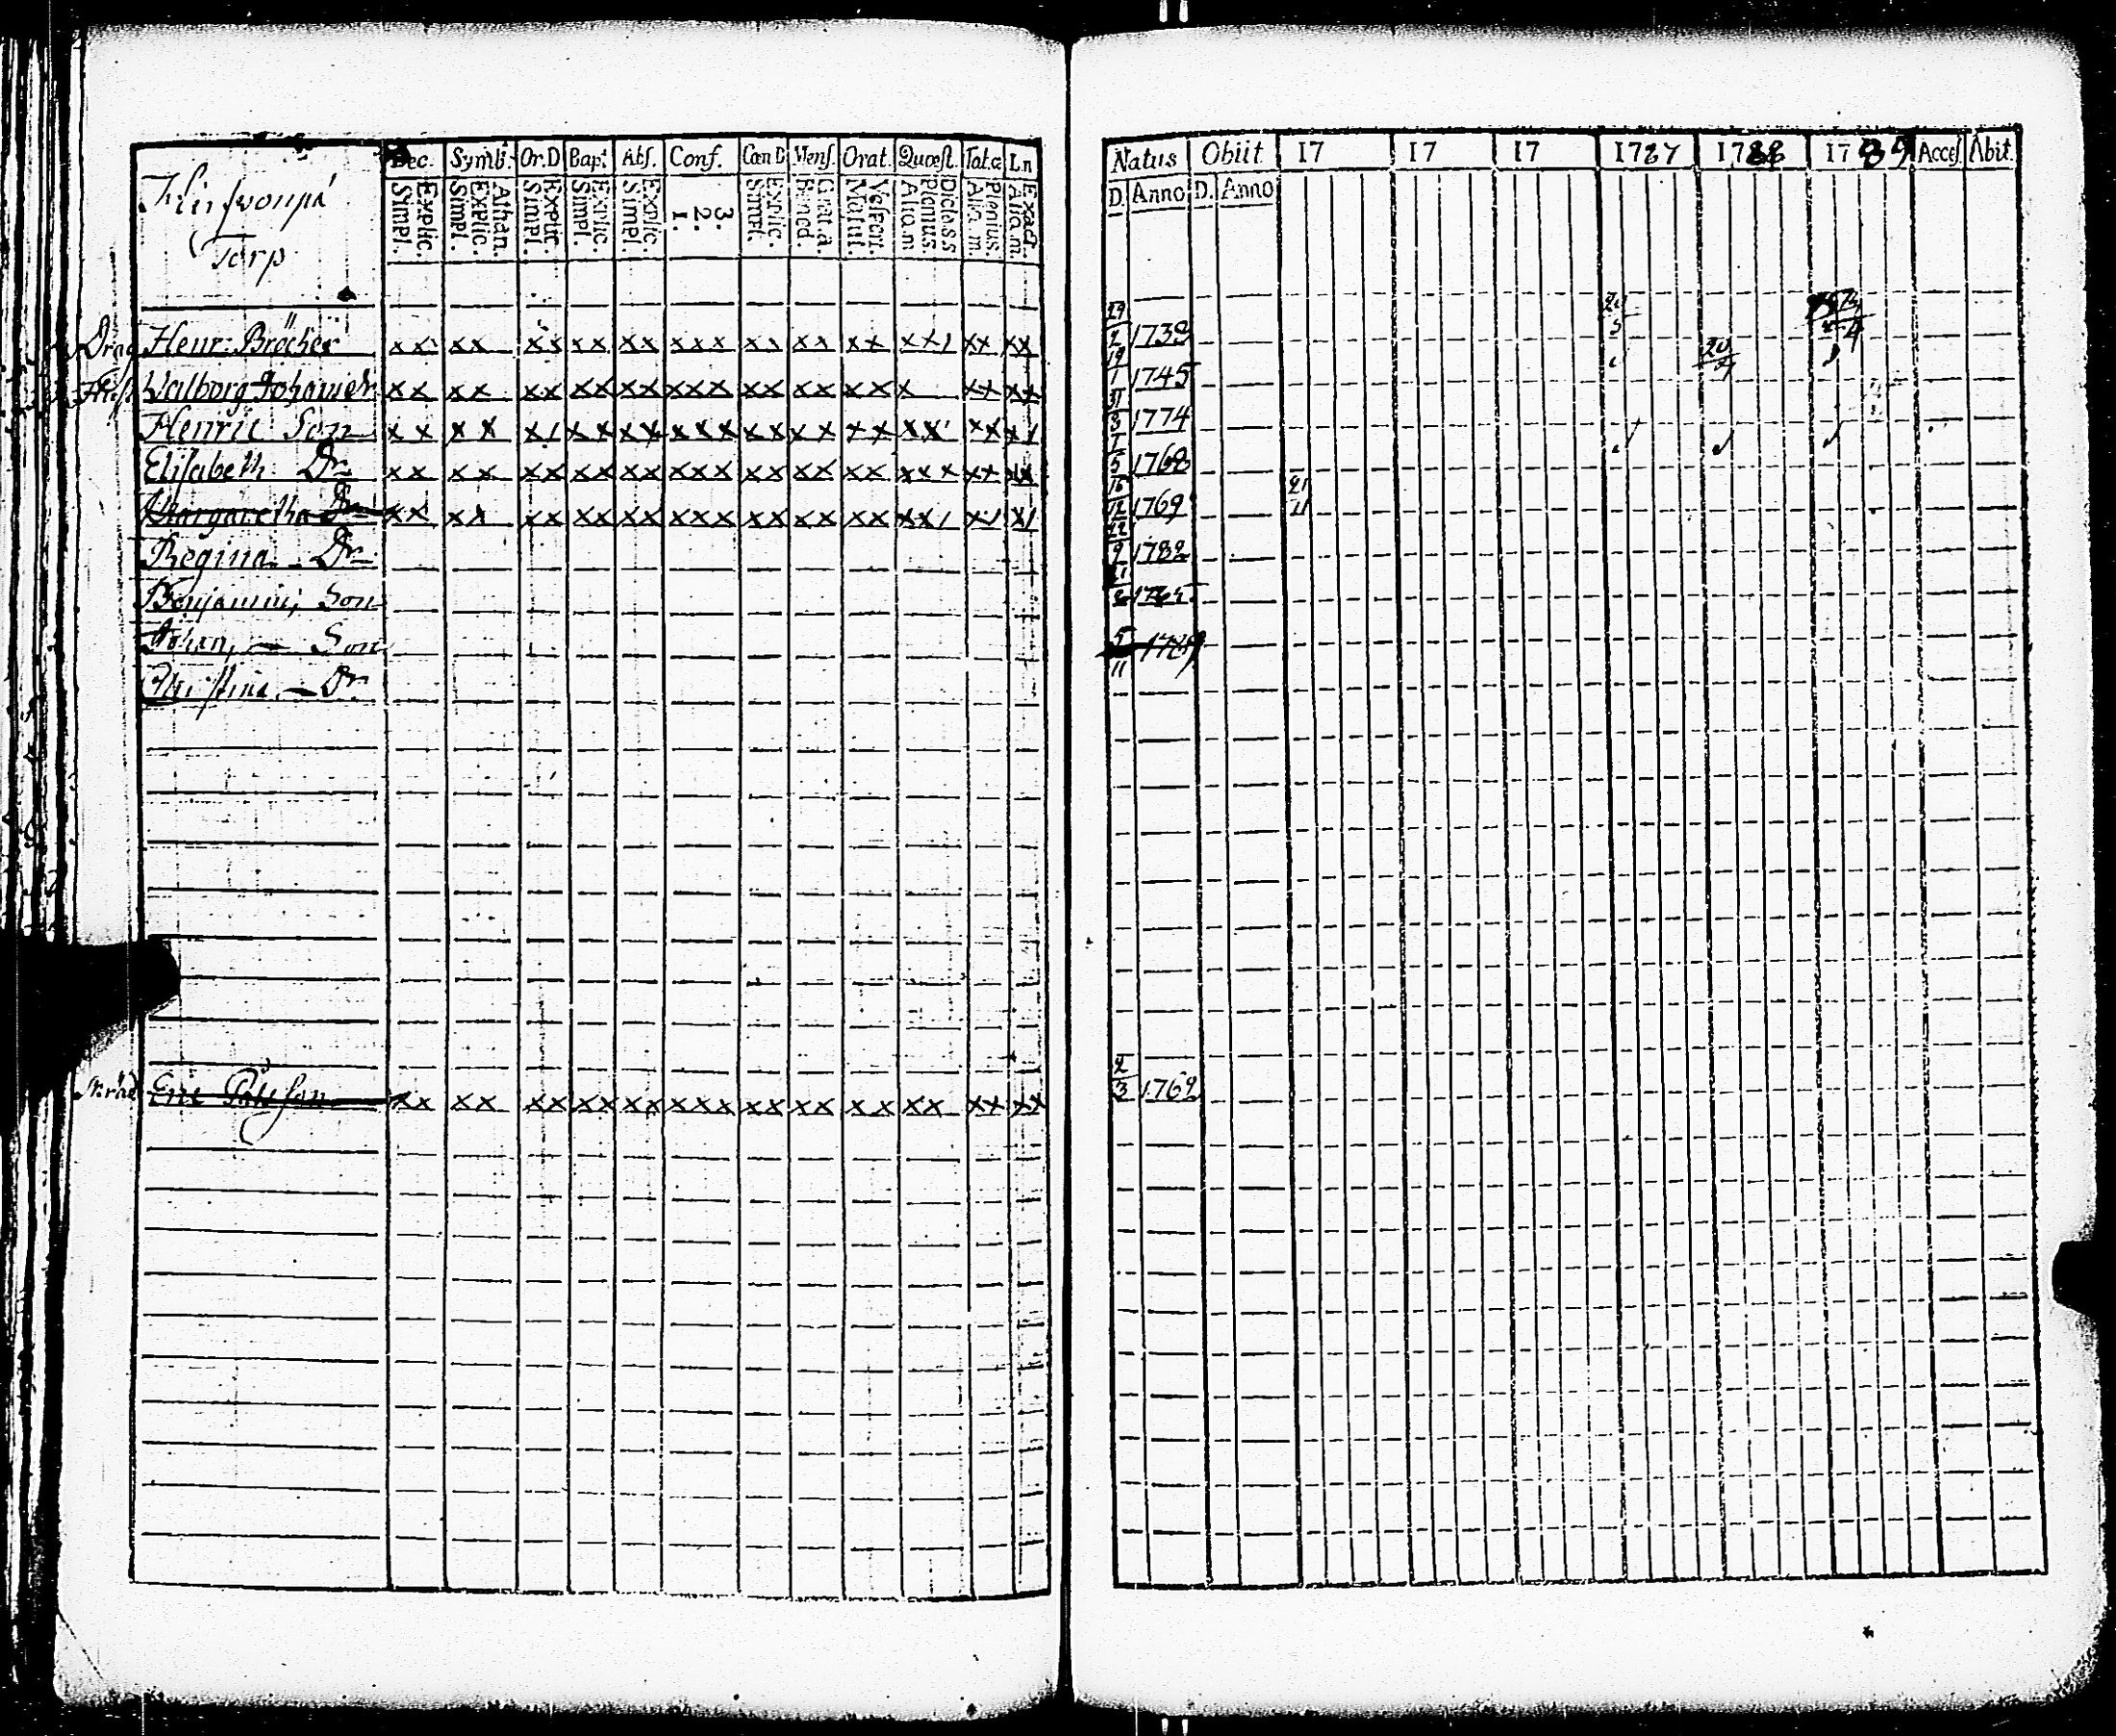 Dec. Symb. Or.D Bapt. Abs. Conf. Cœn D Mens. Orat. Quœst. Tot.a Ln
Explic. Simpl.
Athan. Explic. Simpl.
Explic. Simpl.
Explic. Simpl.
Explic. Simpl.
3. 2. 1.
Explic. Simpl.
Grat. a. Bened.
Vespert. Matut.
Dict. s.s. Plenius. Aliq. m
Plenius. Aliq. m.
Exact. Aliq. m.
Torp
Drag Henr: Bröcher xx xx xx xx xx xxx xx xx xx xx/ xx xx
Walborg Johansdr xx xx xx xx xx xxx xx xx xx x xx xx
Henric Son xx xx x/ xx xx xxx xx xx xx xx xx x/
Elisabeth Dr xx xx xx xx xx xxx xx xx xx xxx xx xx
Margaretha Dr xx xx xx xx xx xxx xx xx xx xx/ x/ x/
Regina Dr
Benjamin, Son
Johan, Son
Christina Dr
Eric Påhlsson xx xx xx xx xx xxx xx xx xx xx xx xx
Natus Obiit 17 17 17 1787 1788 1789 Acces. Abit.
D. Anno D. Anno
29/2 1738
19/1 1745 20/4
31/3 1774
1/5 1768
16/12 1769 21/11
22/9 1782
5/11 1789
2/3 1762